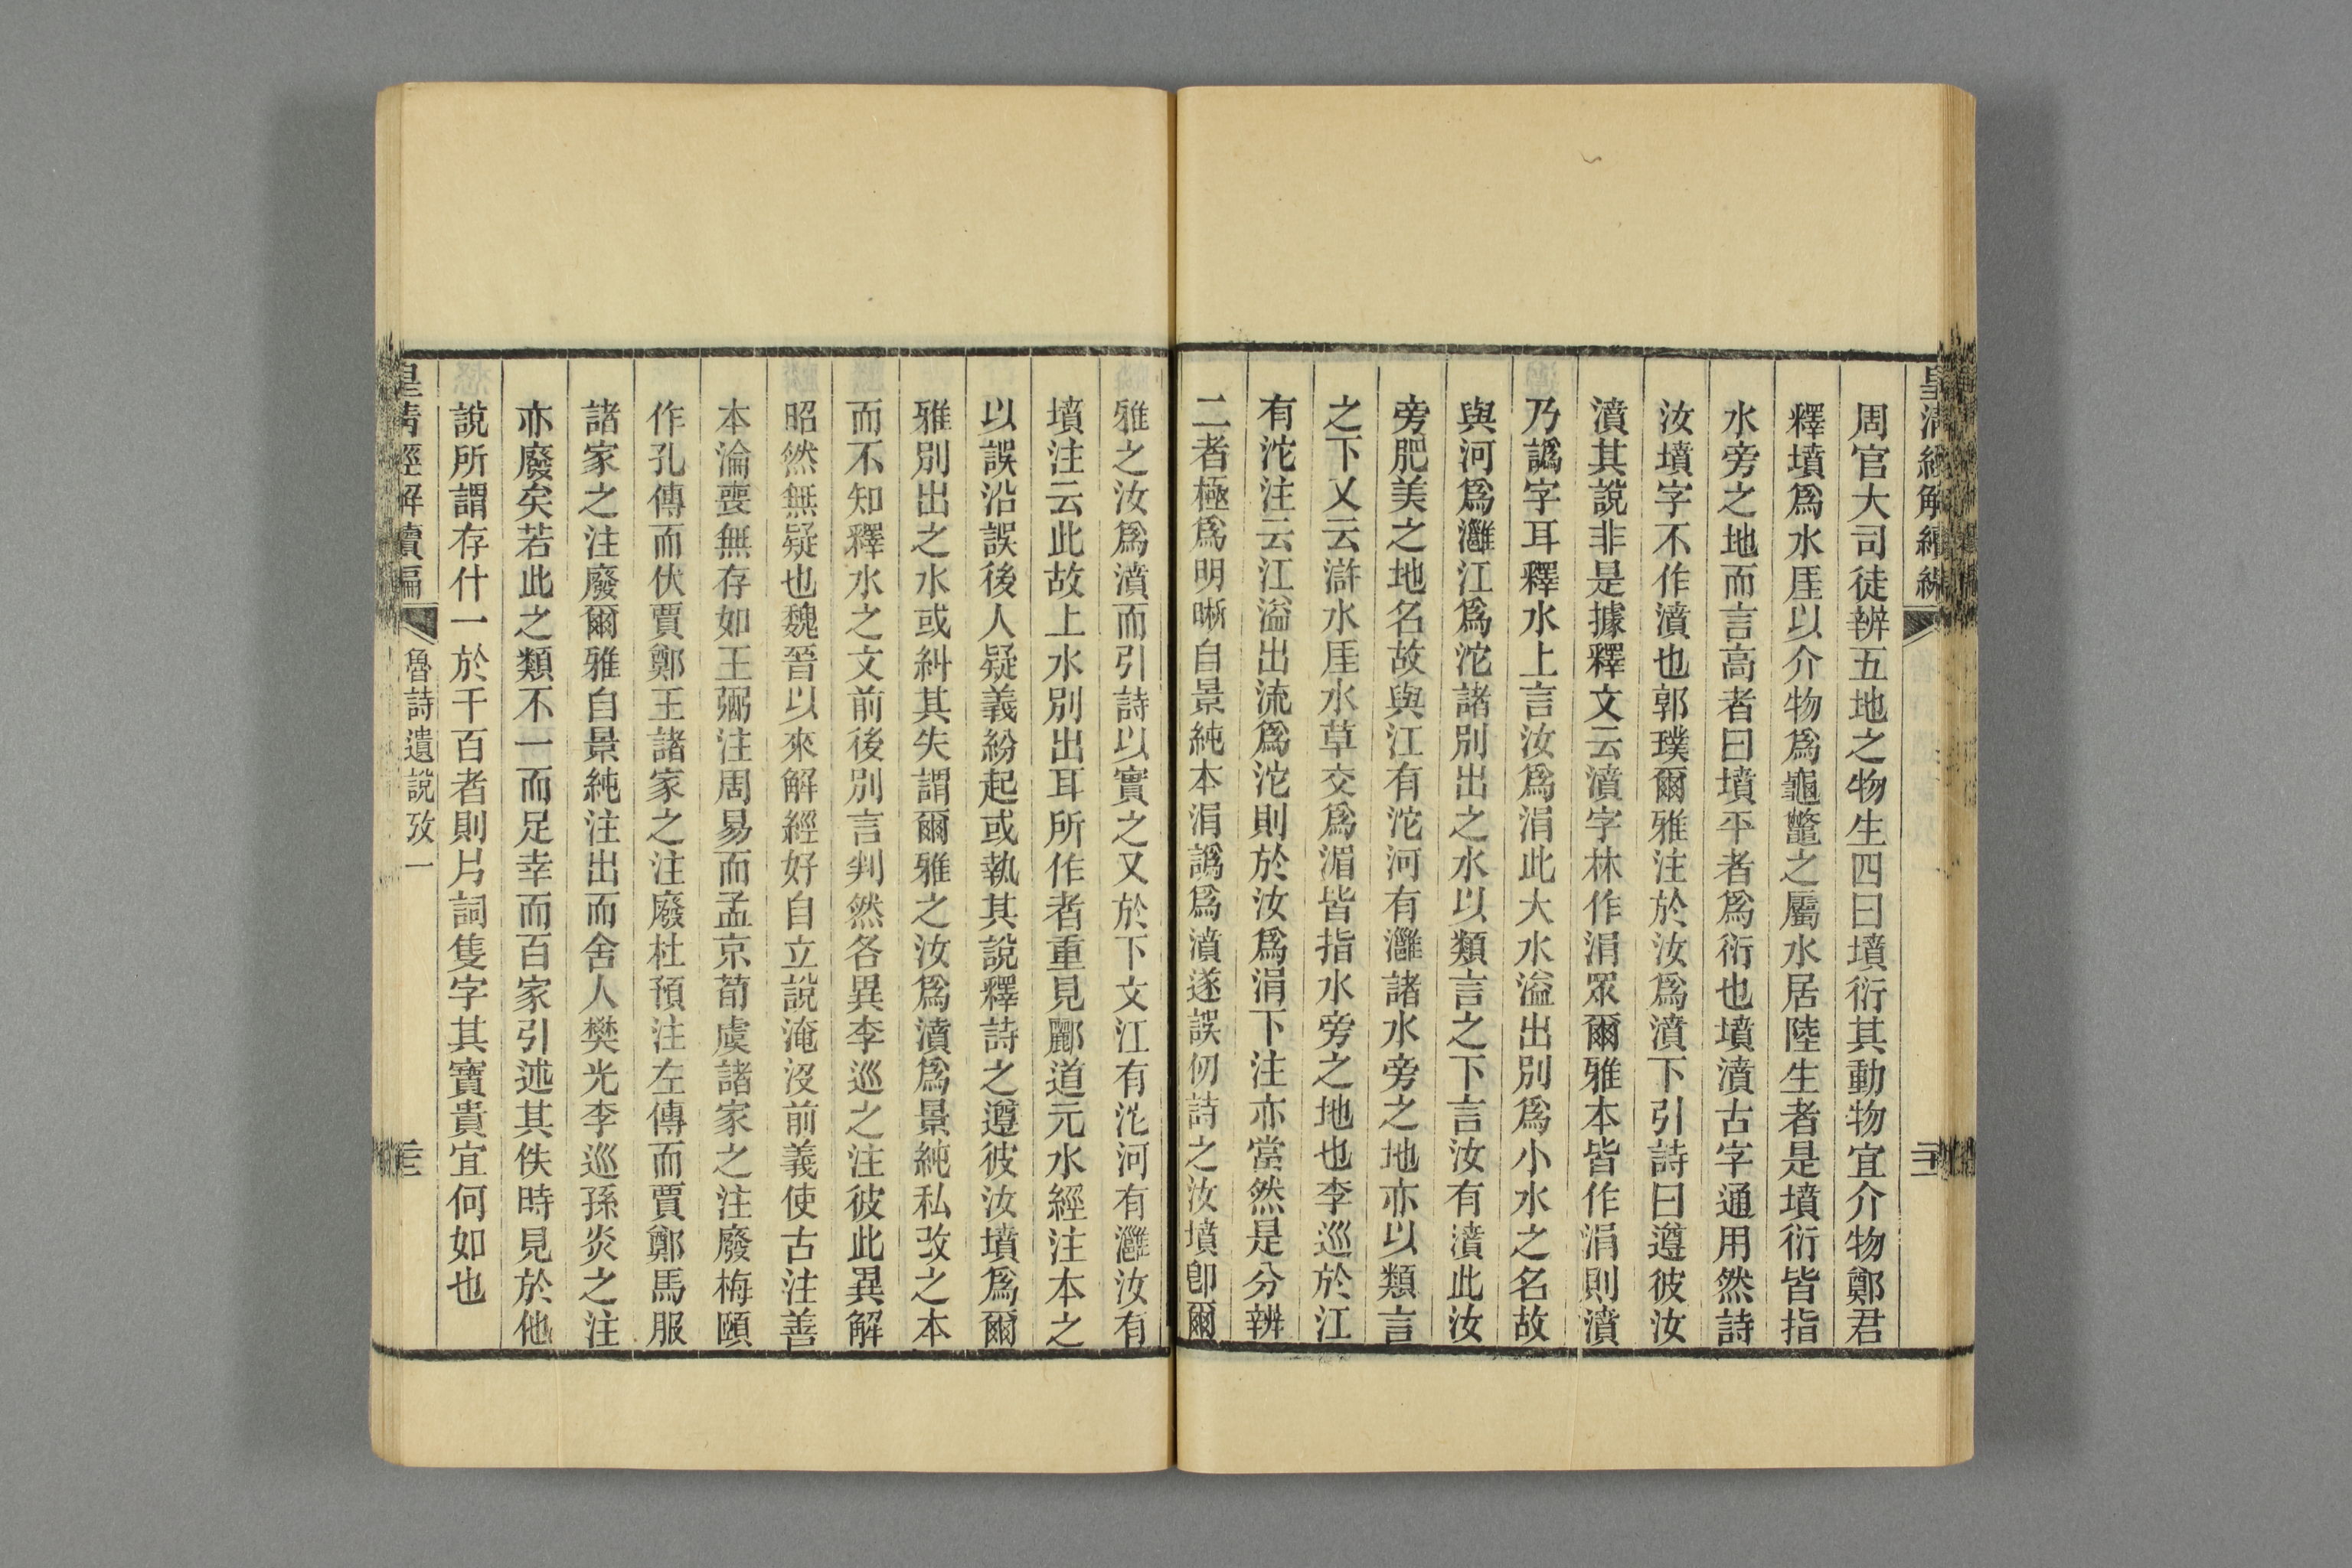 皇清經解續編
周官大司徒辨五地之物生四曰墳衍其動物宜介物鄭君
釋墳爲水厓以介物爲龜鼈之屬水居陸生者是墳衍皆指
水旁之地而言高者曰墳平者爲衍也墳濆古字通用然詩
汝墳字不作濆也郭璞爾雅注於汝爲濆下引詩曰遵彼汝
濆其說非是據釋文云濆字林作涓眾爾雅本皆作涓則濆
乃譌字耳釋水上言汝爲涓此大水溢出別爲小水之名故
與河爲灉江爲沱諸別出之水以類言之下言汝有濆此汝
旁肥美之地名故與江有沱河有灉諸水旁之地亦以類言
之下又云滸水厓水草交爲湄皆指水旁之地也李巡於江
有沱注云江溢出流爲沱則於汝爲涓下注亦當然是分辨
二者極爲明晰自景純本涓譌爲濆遂誤仞詩之汝墳卽爾
雅之汝爲濆而引詩以實之又於下文江有沱河有灉汝有
墳注云此故上水別出耳所作者重見酈道元水經注本之
以誤沿誤後人疑義紛起或執其說釋詩之遵彼汝墳爲爾
雅別出之水或糾其失謂爾雅之汝爲濆爲景純私改之本
而不知釋水之文前後別言判然各異李巡之注彼此異解
昭然無疑也魏晉以來解經好自立說淹沒前義使古注善
本淪喪無存如王弼注周易而孟京荀虞諸家之注廢梅頤
作孔傳而伏賈鄭王諸家之注廢杜預注左傳而賈鄭馬服
諸家之注廢爾雅自景純注出而舍人樊光李巡孫炎之注
亦廢矣若此之類不一而足幸而百家引述其佚時見於他
說所謂存什一於千百者則片詞隻字其寶貴宜何如也
皇清經解續編
魯詩遺說攷一